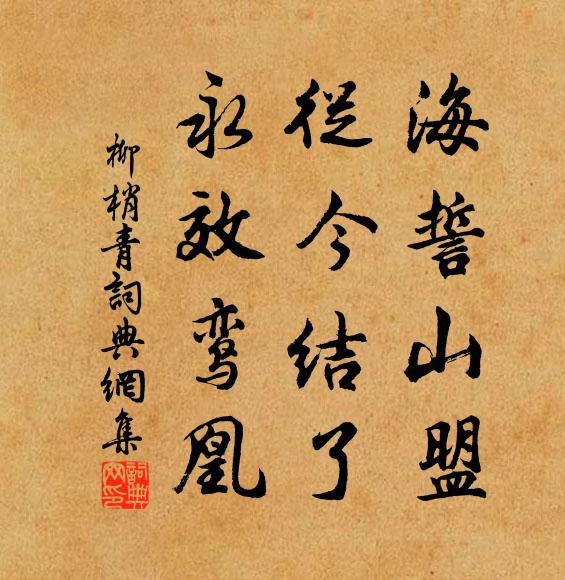 海誓山盟
從今結了
永效鸾凰
柳梢青詞典網集
詞典网印